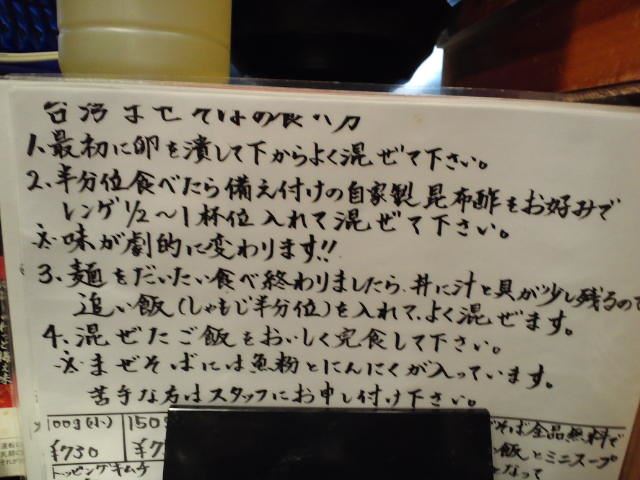 台湾まぜそばの食べ方
1、最初に卵を潰して下からよく混ぜて下さい。
2、半分位食べたら備え付けの自家製昆布酢をお好みで
レンゲ1/2〜1杯位入れて混ぜて下さい。
※味が劇的に変わります!!
3、麺をだいたい食べ終わりましたら、丼に汁と具が少し残るので
追い飯(しゃもじ半分位)を入れて、よく混ぜます。
4、混ぜたご飯をおいしく完食して下さい。
※まぜそばには魚粉とにんにくが入っています。
苦手な方はスタッフにお申し付け下さい。
100g(小) 150
¥730 ¥7
トッピングキムチ
そば全品無料で
い飯とミニスープ
となって